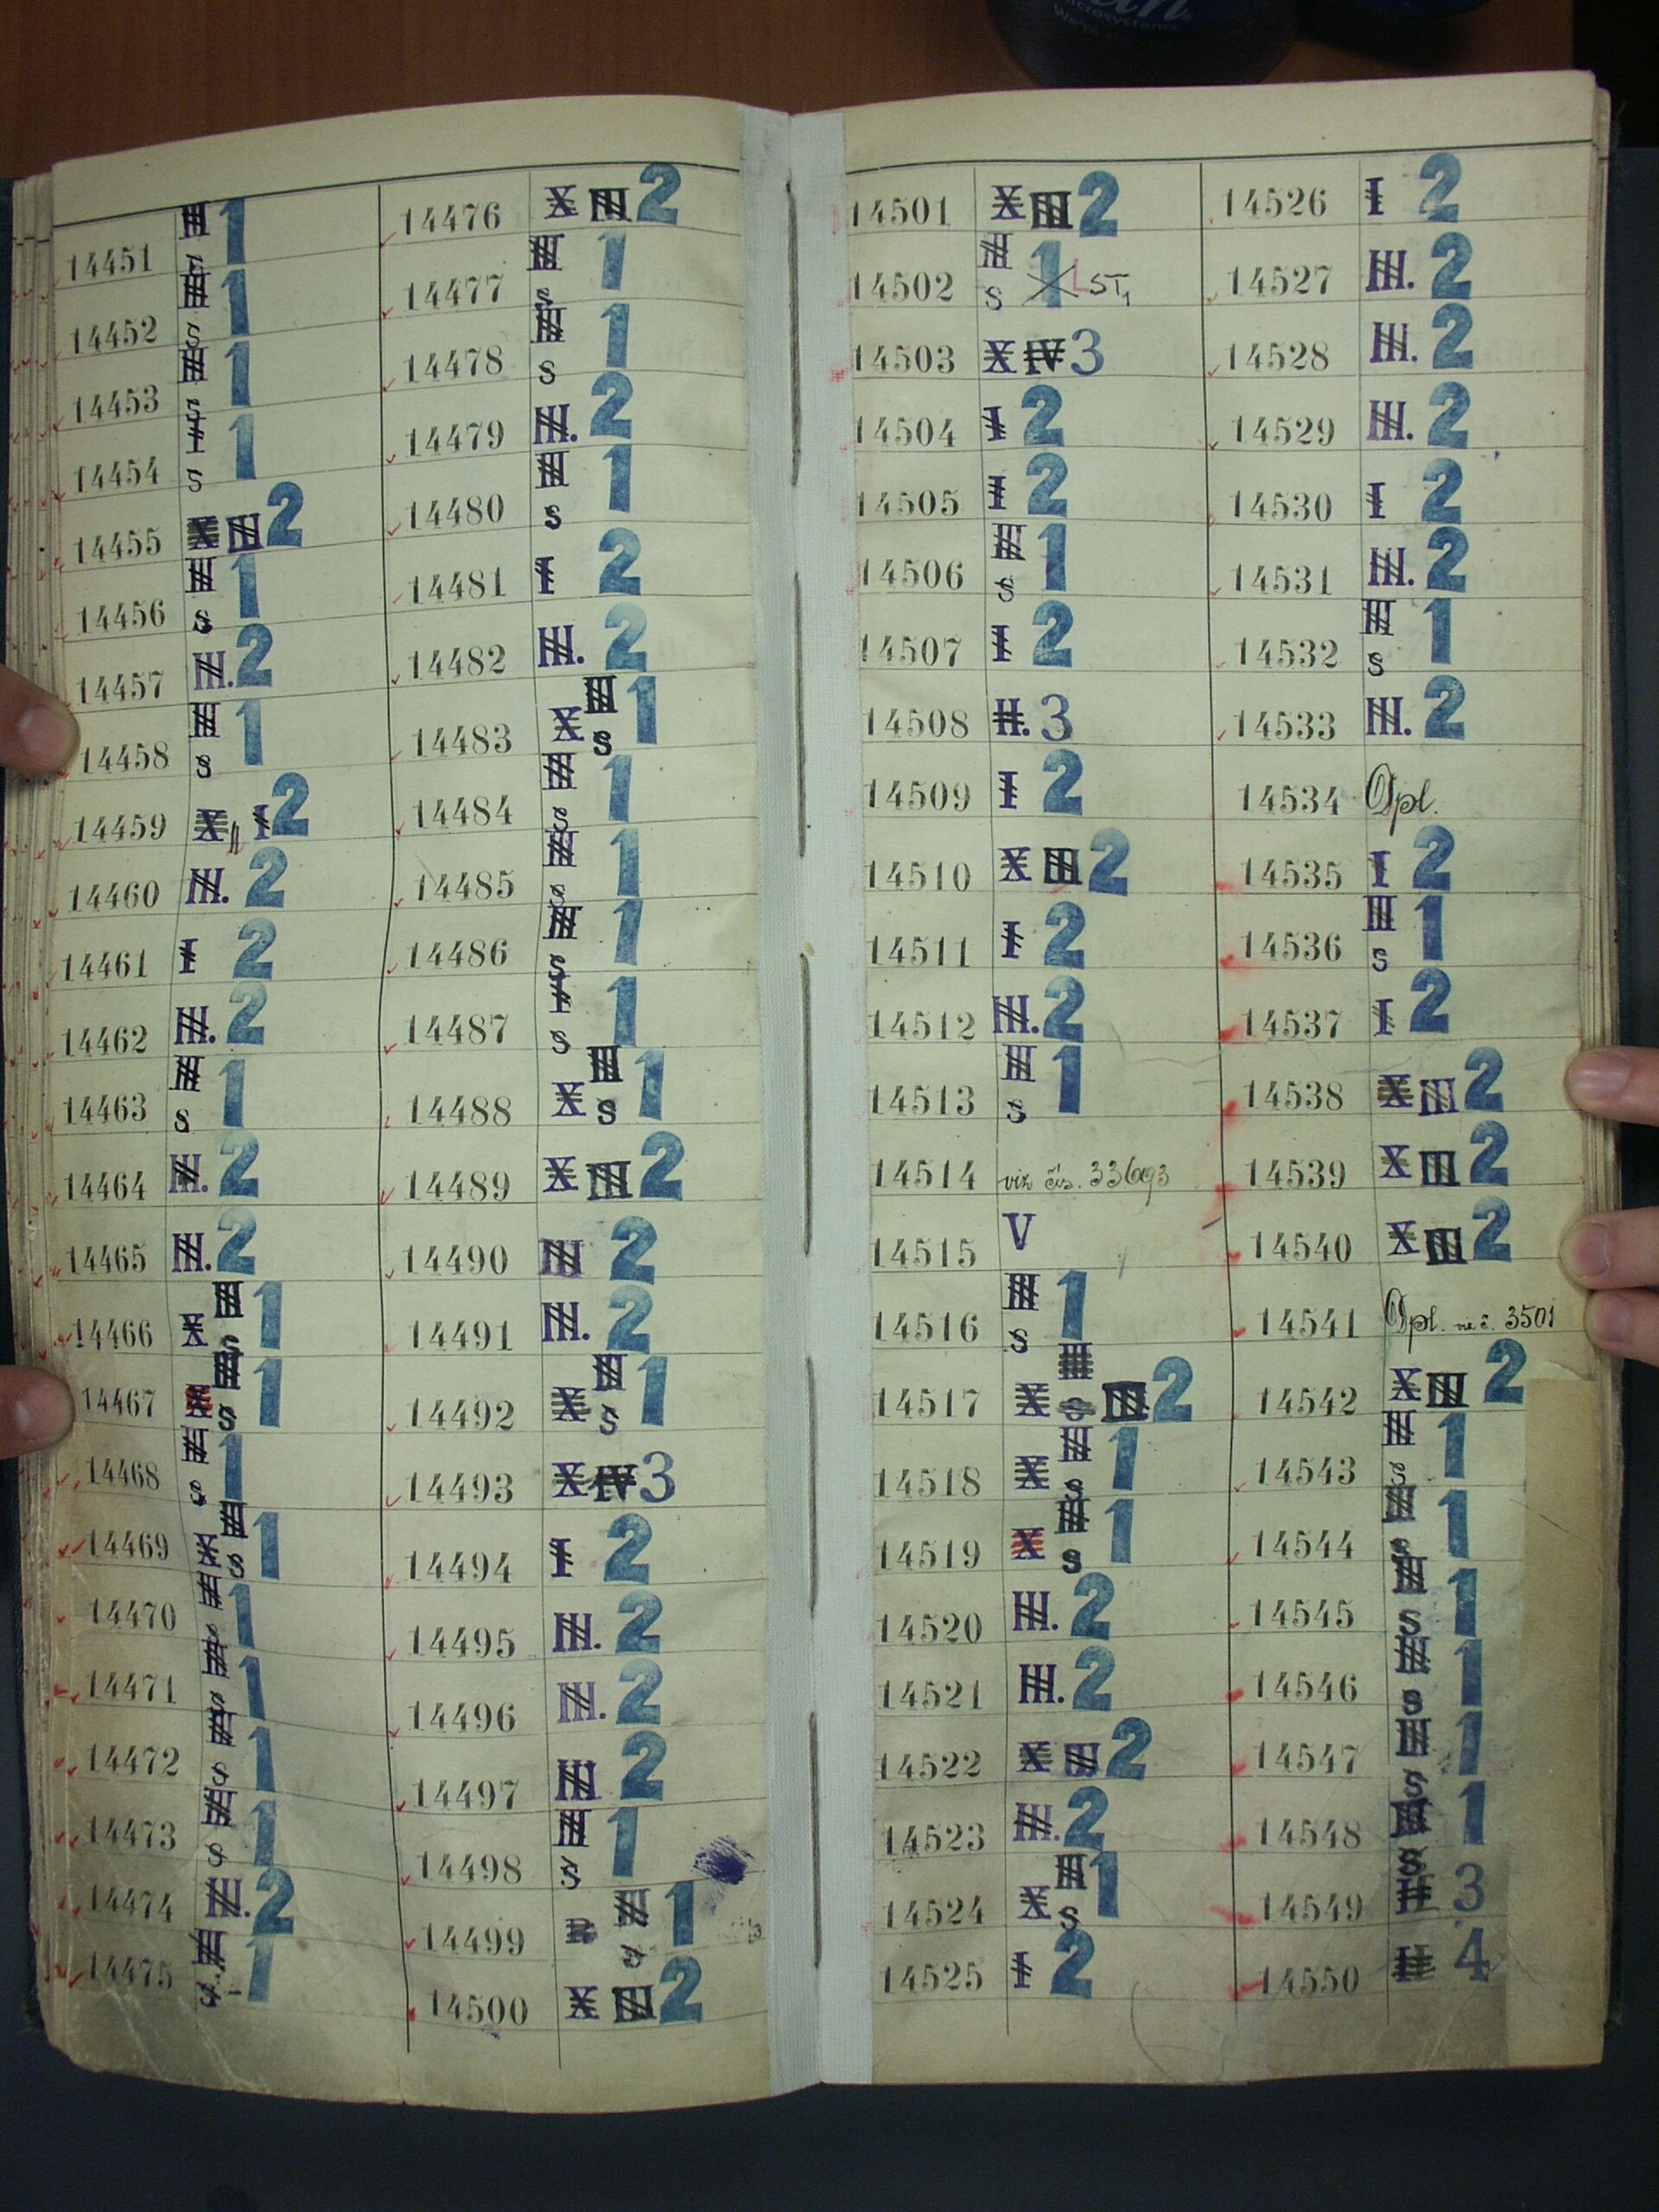 14451 III S 1
14452 III S 1
14453 III S 1
14454 I S 1
14455 X III 2
14456 III S 1
14457 III. 2
14458 III S 1
14459 X I 2
14460 III. 2
14461 I 2
14462 III. 2
14463 III S 1
14464 III. 2
14465 III. 2
14466 X III S 1
14467 X III S 1
14468 III S 1
14469 X III S 1
14470 III S 1
14471 III S 1
14472 III S 1
14473 III S 1
14474 III. 2
14475 III S 1
14476 X III 2
14477 III S 1
14478 III S 1
14479 III. 2
14480 III S 1
14481 I 2
14482 III. 2
14483 X III S 1
14484 III S 1
14485 III S 1
14486 III S 1
14487 I S 1
14488 X III S 1
14489 X III 2
14490 III 2
14491 III. 2
14492 X III S 1
14493 X IV 3
14494 I 2
14495 III. 2
14496 III. 2
14497 III 2
14498 III S 1
14499 III S 1
14500 X III 2
14501 X III 2
14502 III S 1 ST1
14503 X IV 3
14504 I 2
14505 I 2
14506 III S 1
14507 I 2
14508 II. 3
14509 I 2
14510 X III 2
14511 I 2
14512 III. 2
14513 III S 1
14514 viz čís. 33693
14515 V
14516 III S 1
14517 X III S III 2
14518 X III S 1
14519 X III S 1
14520 III. 2
14521 III. 2
14522 X III 2
14523 III. 2
14524 X III S 1
14525 I 2
14526 I 2
14527 III. 2
14528 III. 2
14529 III. 2
14530 I 2
14531 III. 2
14532 III S 1
14533 III. 2
14534 Opl.
14535 I 2
14536 III S 1
14537 I 2
14538 X III 2
14539 X III 2
14540 X III 2
14541 Opl. na č. 3501
14542 X III 2
14543 III S 1
14544 III S 1
14545 III S 1
14546 III S 1
14547 III S 1
14548 III S 1
14549 II 3
14550 II 4